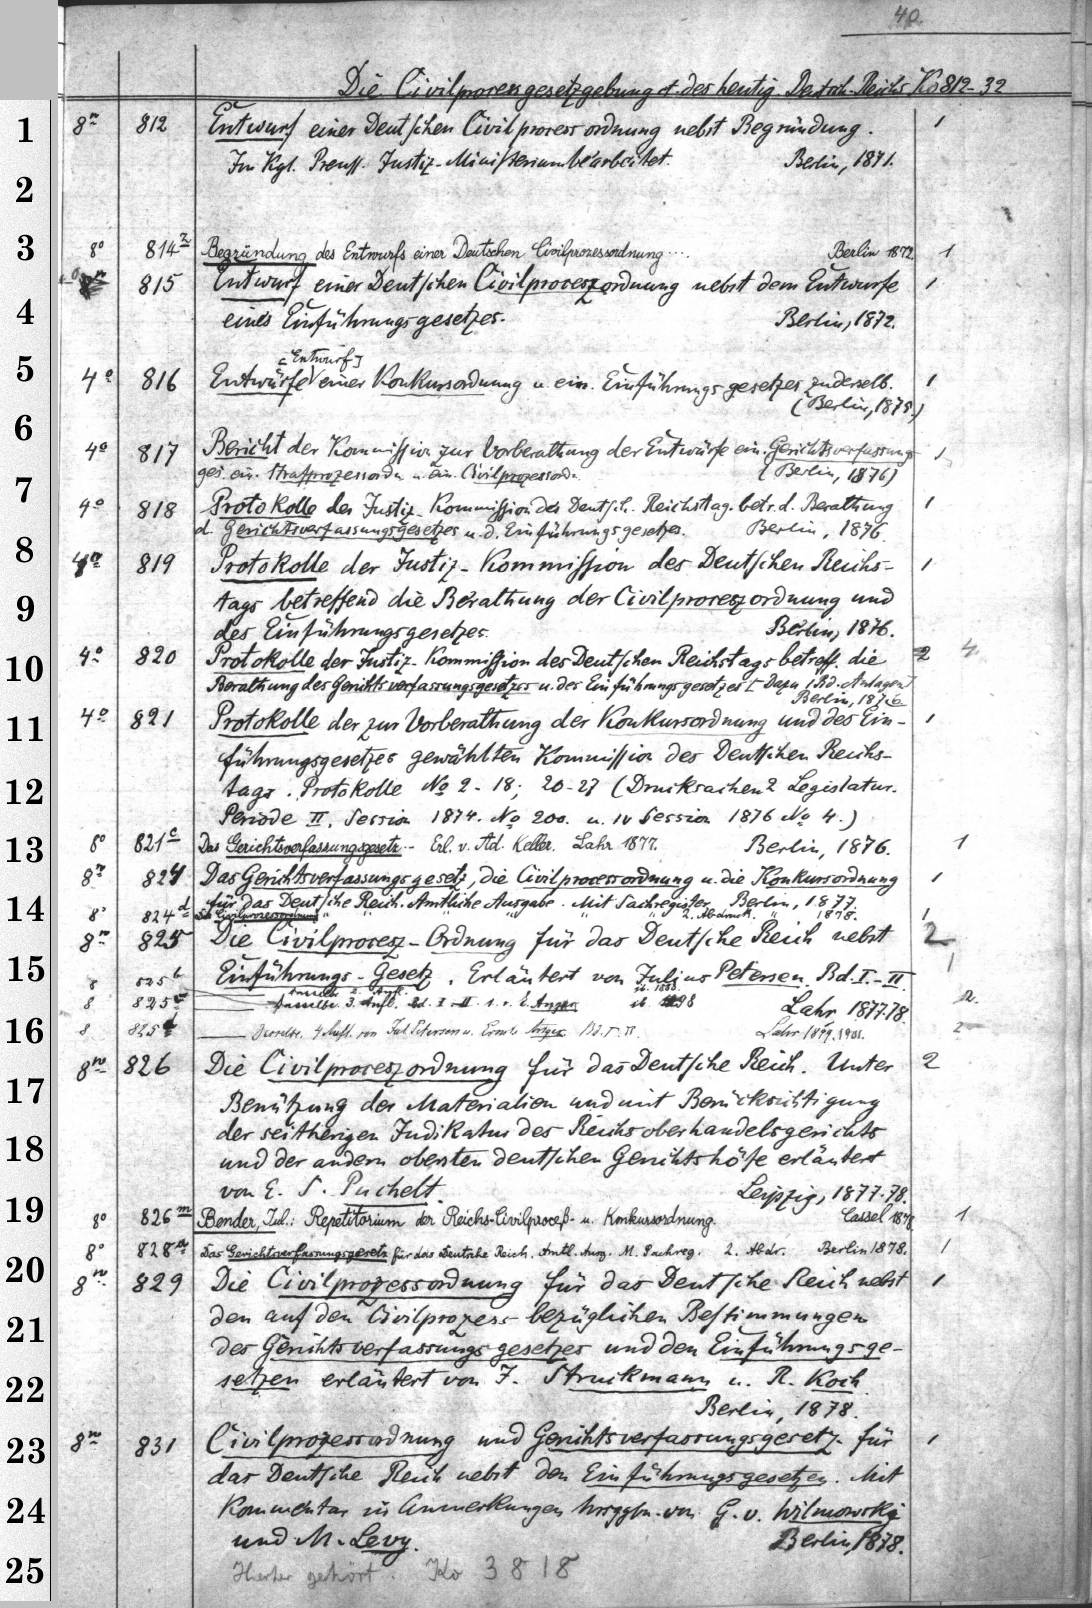 40.
Die Civilprocessgesetzgebung d. des heutig. Deutsch. Reichs Ko 812-32
1 8º 812 Entwurf einer Deutschen Civilprocessordnung nebst Begründung. 1
Im Kgl. Preuss. Justiz-Ministerium bearbeitet. Berlin, 1871.
2
3 8º 814z Begründung des Entwurfs einer Deutschen Civilprozessordnung.... Berlin 1872 1
815 Entwurf einer Deutschen Civilproceszordnung nebst dem Entwurfe 1
4 eines Einführungsgesetzes. Berlin, 1872.
[Entwurf]
5 4º 816 Entwürfe einer Konkursordnung u. ein. Einführungsgesetzes zu derselb. 1
(Berlin, 1875.)
6 4º 817 Bericht der Kommission zur Vorberathung der Entwürfe ein. Gerichtsverfassung 1
ges. ein. Strafprozessordn. u. ein. Civilprozessordn. (Berlin, 1876)
7 4º 818 Protokolle der Justiz-Kommission des Deutsch. Reichstag. betr. d. Berathung 1
d. Gerichtsverfassungsgesetzes u. d. Einführungsgesetzes. Berlin, 1876.
8 4º 819 Protokolle der Justiz-Kommission des Deutschen Reichs- 1
9 tags betreffend die Berathung der Civilproceszordnung und
des Einführungsgesetzes. Berlin, 1876.
10 4º 820 Protokolle der Justiz-Kommission des Deutschen Reichstags betreff. die 2 4.
Berathung des Gerichtsverfassungsgesetzes u. des Einführungsgesetzes [Dazu 1 Bd. Anlagen]
Berlin, 1876
11 4º 821 Protokolle der zur Vorberathung der Konkursordnung und des Ein- 1
führungsgesetzes gewählten Kommission des Deutschen Reichs-
12 tags. Protokolle No 2-18; 20-27 (Drucksachen 2 Legislatur.
Periode II. Session 1874. No 200. u. IV Session 1876 No 4.)
Berlin, 1876.
13 8º 821c Das Gerichtsverfassungsgesetz.- Erl. v. Ad. Keller. Lahr 1877. 1
8º 824 Das Gerichtsverfassungsgesetz, die Civilprocessordnung u. die Konkursordnung 1
für das Deutsche Reich. Amtliche Ausgabe. Mit Sachregister. Berlin, 1877.
14 8º 824d Die Civilprozessordnung " " " 2. Abdruck. " 1878. 1
8º 825 Die Civilprocesz-Ordnung für das Deutsche Reich nebst 2
15 Einführungs-Gesetz. Erläutert von Julius Petersen. Bd. I.-II
Lahr 1877.78.
8 825b Dasselbe 2. Aufl. 1
8 825c Dasselbe. 3. Aufl. Bd. I-II v. E. Anger 2.
16 8 825d Dasselbe. 4 Aufl. von Jul. Petersen u. Ernst Anger Bd. I. II. Lahr 1899.1901. 2
8º 826 Die Civilproceszordnung für das Deutsche Reich. Unter 2
17 Benützung der Materialien und mit Berücksichtigung
der seitherigen Judikatur des Reichsoberhandelsgerichts
18 und der andern obersten deutschen Gerichtshöfe erläutert
von E. S. Puchelt. Leipzig, 1877-78.
19 8º 826m Bender, Jul.: Repetitorium der Reichs-Civilproceß- u. Konkursordnung. Cassel 1 
8º 828a Das Gerichtsverfassungsgesetz für das Deutsche Reich. Amtl. Ausg. M. Sachreg. 2. Abdr. Berlin 1878. 1
20 8º 829 Die Civilprozessordnung für das Deutsche Reich nebst 1
21 den auf den Civilprozess bezüglichen Bestimmungen
des Gerichtsverfassungsgesetzes und den Einführungsge-
22 setzen erläutert von J. Struckmann u. R. Koch
Berlin, 1878.
23 8º 831 Civilprozessordnung und Gerichtsverfassungsgesetz für 1
das Deutsche Reich nebst den Einführungsgesetzen. Mit
24 Kommentar in Anmerkungen hrsggbn. von G. v. Wilmowski
und M. Levy. Berlin, 1878.
25 Hierher gehört: Ko 3818